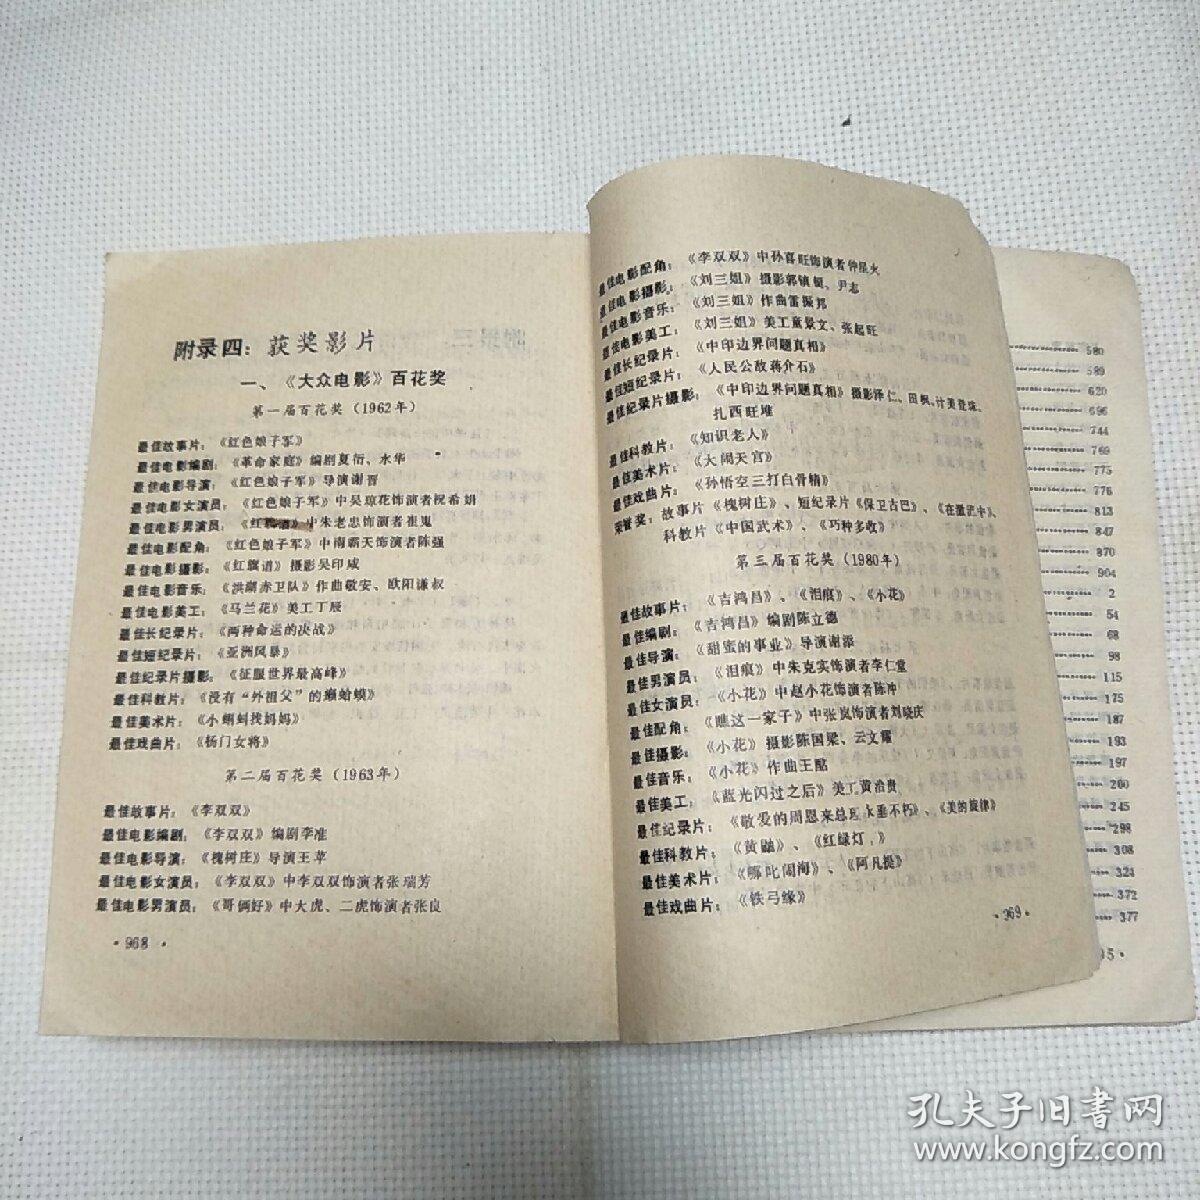 附录四：获奖影片
一、《大众电影》百花奖
第一届百花奖（1962年）
最佳故事片：《红色娘子军》
最佳电影编剧：《革命家庭》编剧夏衍、水华
最佳电影导演：《红色娘子军》导演谢晋
最佳电影女演员：《红色娘子军》中吴琼花饰演者祝希娟
最佳电影男演员：《红旗谱》中朱老忠饰演者崔嵬
最佳电影配角：《红色娘子军》中南霸天饰演者陈强
最佳电影摄影：《红旗谱》摄影吴印咸
最佳电影音乐：《洪湖赤卫队》作曲敬安、欧阳谦叔
最佳电影美工：《马兰花》美工丁辰
最佳长纪录片：《两种命运的决战》
最佳短纪录片：《亚洲风暴》
最佳纪录片摄影：《征服世界最高峰》
最佳科教片：《没有“外祖父”的癞蛤蟆》
最佳美术片：《小蝌蚪找妈妈》
最佳戏曲片：《杨门女将》
第二届百花奖（1963年）
最佳故事片：《李双双》
最佳电影编剧：《李双双》编剧李准
最佳电影导演：《槐树庄》导演王苹
最佳电影女演员：《李双双》中李双双饰演者张瑞芳
最佳电影男演员：《哥俩好》中大虎、二虎饰演者张良
·968·
最佳电影配角：《李双双》中孙喜旺饰演者仲星火
最佳电影摄影：《刘三姐》摄影郭镇铤、尹志
最佳电影音乐：《刘三姐》作曲雷振邦
最佳电影美工：《刘三姐》美工童景文、张起旺
最佳长纪录片：《中印边界问题真相》
最佳短纪录片：《人民公敌蒋介石》
最佳纪录片摄影：《中印边界问题真相》摄影泽仁、田枫、计美登珠、
扎西旺堆
最佳科教片：《知识老人》
最佳美术片：《大闹天宫》
最佳戏曲片：《孙悟空三打白骨精》
荣誉奖：故事片《槐树庄》、短纪录片《保卫古巴》、《在激流中》、
科教片《中国武术》、《巧种多收》
第三届百花奖（1980年）
最佳故事片：《吉鸿昌》、《泪痕》、《小花》
最佳编剧：《吉鸿昌》编剧陈立德
最佳导演：《甜蜜的事业》导演谢添
最佳男演员：《泪痕》中朱克实饰演者李仁堂
最佳女演员：《小花》中赵小花饰演者陈冲
最佳配角：《瞧这一家子》中张岚饰演者刘晓庆
最佳摄影：《小花》摄影陈国梁、云文耀
最佳音乐：《小花》作曲王酩
最佳美工：《蓝光闪过之后》美工黄洽贵
最佳纪录片：《敬爱的周恩来总理永垂不朽》、《美的旋律》
最佳科教片：《黄鼬》、《红绿灯下》
最佳美术片：《哪吒闹海》、《阿凡提》
最佳戏曲片：《铁弓缘》
·969·
580
589
620
696
744
769
775
776
813
847
870
904
2
54
68
98
115
175
187
193
197
200
245
298
308
323
372
377
孔夫子旧书网
www.kongfz.com